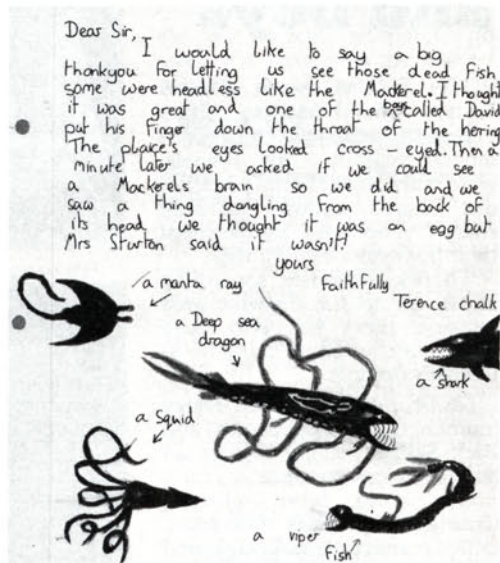 Dear Sir,
I would like to say a big
thankyou for letting us see those dead Fish
some were headless like the Mackerel. I thought
it was great and one of the boys called David
put his finger down the throat of the herring
The plaice's eyes looked cross - eyed. Then a
minute later we asked if we could see
a Mackerels brain so we did and we
saw a thing dangling from the back of
its head we thought it was an egg but
Mrs Sturton said it wasn't!
yours
Faithfully
Terence chalk
a manta ray
a Deep sea
dragon
a shark
a squid
a viper
Fish